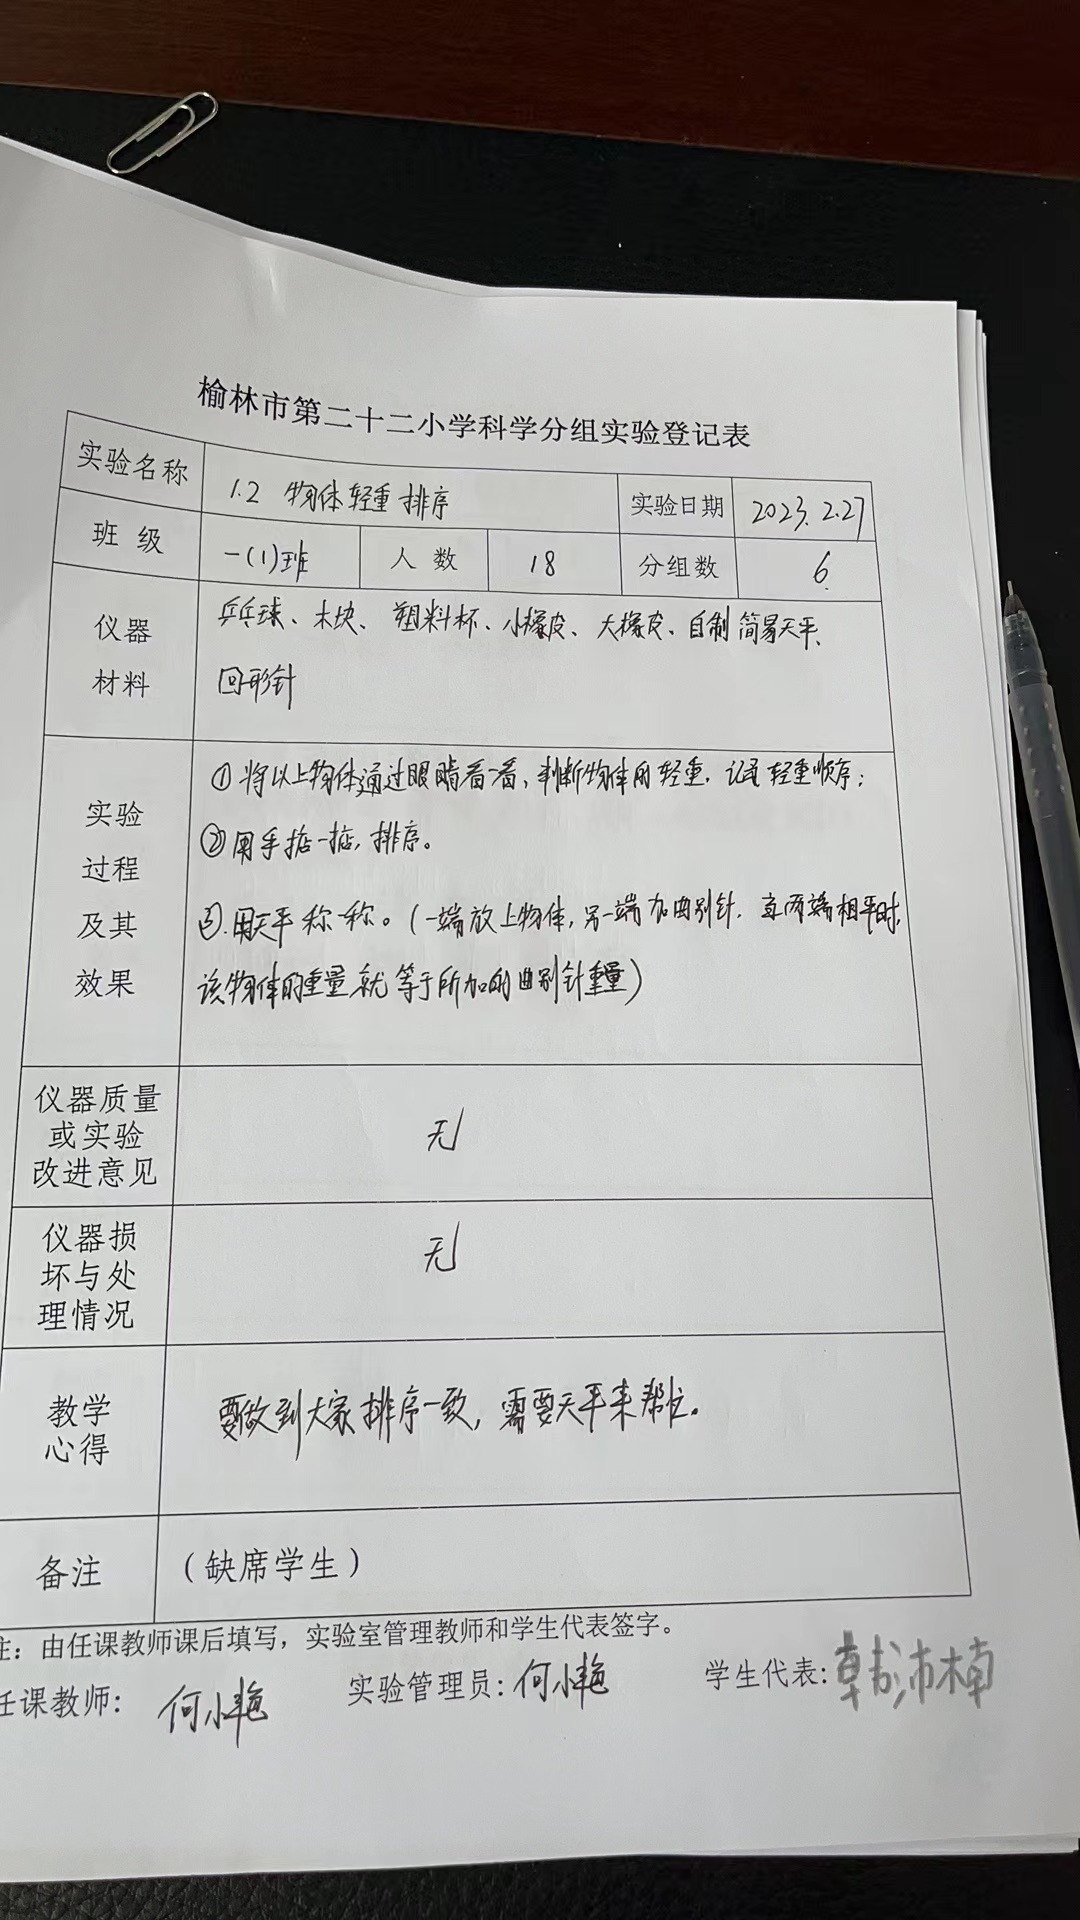 榆林市第二十二小学科学分组实验登记表
实验名称 1.2 物体轻重排序 实验日期 2023.2.27
班级 一(1)班 人数 18 分组数 6
仪器 乒乓球、木块、塑料杯、小橡皮、大橡皮、自制简易天平、
材料 回形针
①将以上物体通过眼睛看一看,判断物体的轻重,记录轻重顺序;
实验
②用手掂一掂,排序。
过程
及其 ③.用天平称一称。(一端放上物体,另一端加曲别针,当两端相平时,
效果 该物体的重量就等于所加的曲别针重量)
仪器质量
或实验 无
改进意见
仪器损 无
坏与处
理情况
教学 要做到大家排序一致,需要天平来帮忙。
心得
备注 (缺席学生)
注:由任课教师课后填写,实验室管理教师和学生代表签字。
任课教师: 何小艳 实验管理员:何小艳 学生代表:韩沛楠